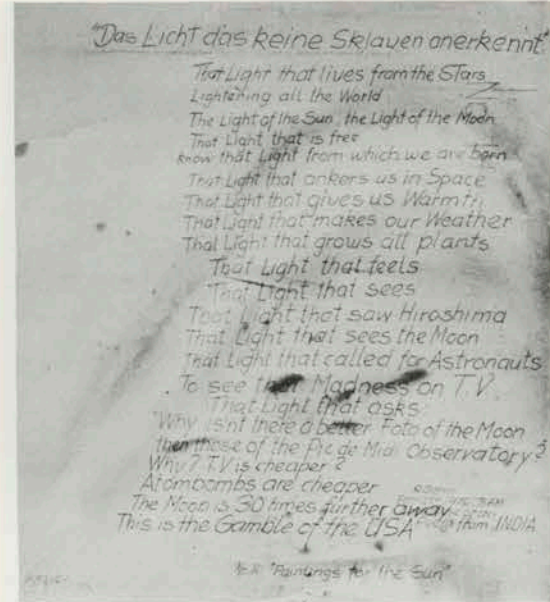 "Das Licht das keine Sklaven anerkennt"
That Light that lives from the STars
Lightening all the World
The Light of the Sun, the Light of the Moon
That Light that is free
know that Light from which we are born
That Light that ankers us in Space
That Light that gives us Warmth
That Light that makes our Weather
That Light that grows all plants
That Light that feels
That Light that sees
That Light that saw Hiroshima
That Light that sees the Moon
That Light that called for Astronauts
To see that Madness on T.V.
That Light that asks:
"Why isn't there a better Foto of the Moon
then those of the Pic ge Midi Observatory?
Why? T.V is cheaper?
Atombombs are cheaper
The Moon is 30 times further away
This is the Gamble of the USA
from INDIA
"Paintings for the Sun"